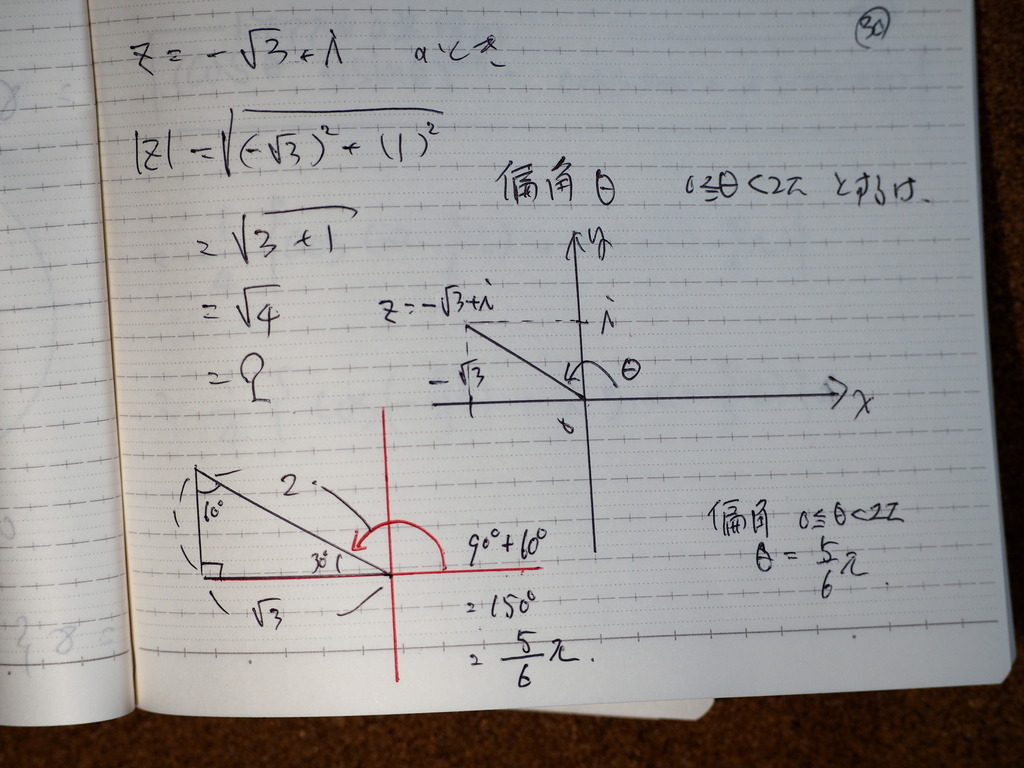 30
z = -√3 + i のとき
|z| = √((-√3)² + (1)²)
= √(3 + 1)
= √4
= 2
偏角 θ 0≦θ<2π とすれば、
y
z = -√3+i
i
-√3
θ
x
0
60°
2
30°
1
√3
90°+60°
= 150°
= 5/6 π.
偏角 0≦θ<2π
θ = 5/6 π.